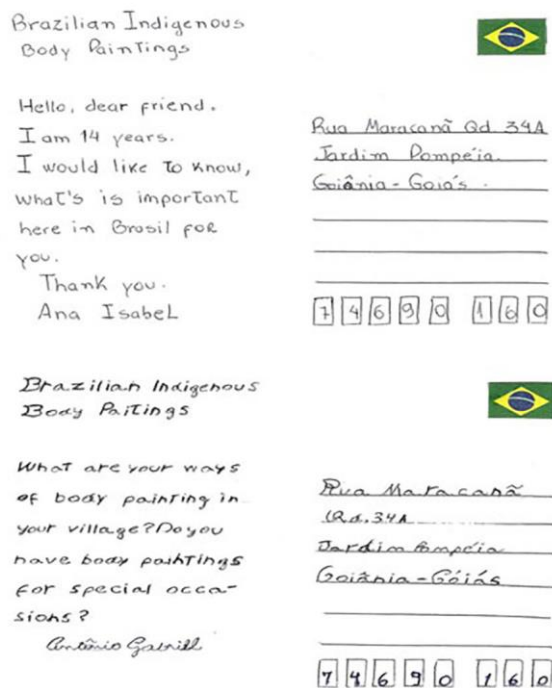 Brazilian Indigenous
Body Paintings
Hello, dear friend.
I am 14 years.
I would like to know,
what's is important
here in Brasil for
you.
Thank you.
Ana Isabel
Rua Maracanã Qd. 34A
Jardim Pompéia.
Goiânia - Goiás.
74690 160
Brazilian Indigenous
Body Paitings
What are your ways
of body painting in
your village? Do you
have body paintings
for special occa-
sions?
Antônio Gabriel
Rua Maracanã
Qd. 34A
Jardim Pompéia
Goiânia - Góiás
74690 160